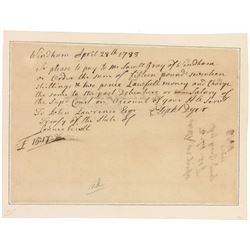 Windham April 28th 1783
Sr please to pay to Mr Saml Gray of Windham
or Order the sum of fifteen pounds seventeen
shillings & two pence Lawfull money and Charge
the same to the part Debenture or Salary of
the Supr Court on Account of your Hle Servt
To John Lawrence Esqr Elipht Dyer
Treasr of the State of
Connecticutt
£ 15:17:2